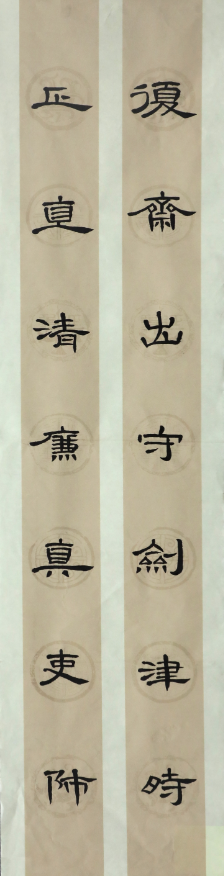 復齋出守劍津時
正直清廉真吏師